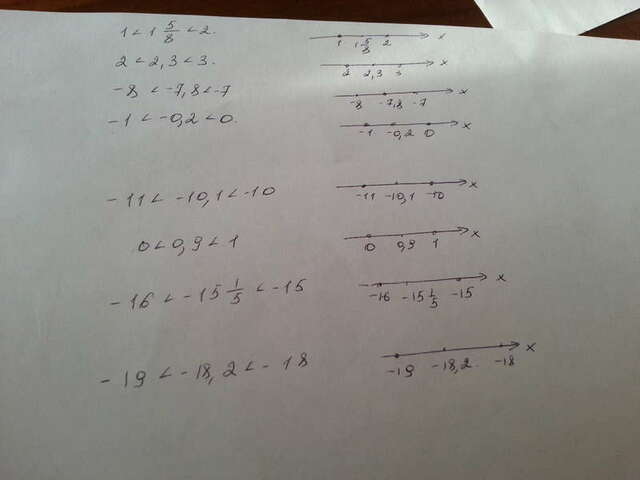 1 < 1 5/8 < 2. 1 1 5/8 2 x
2 < 2,3 < 3. 2 2,3 3 x
-8 < -7,8 < -7 -8 -7,8 -7 x
-1 < -0,2 < 0. -1 -0,2 0 x
-11 < -10,1 < -10 -11 -10,1 -10 x
0 < 0,9 < 1 0 0,9 1 x
-16 < -15 1/5 < -15 -16 -15 1/5 -15 x
-19 < -18,2 < -18 -19 -18,2. -18 x